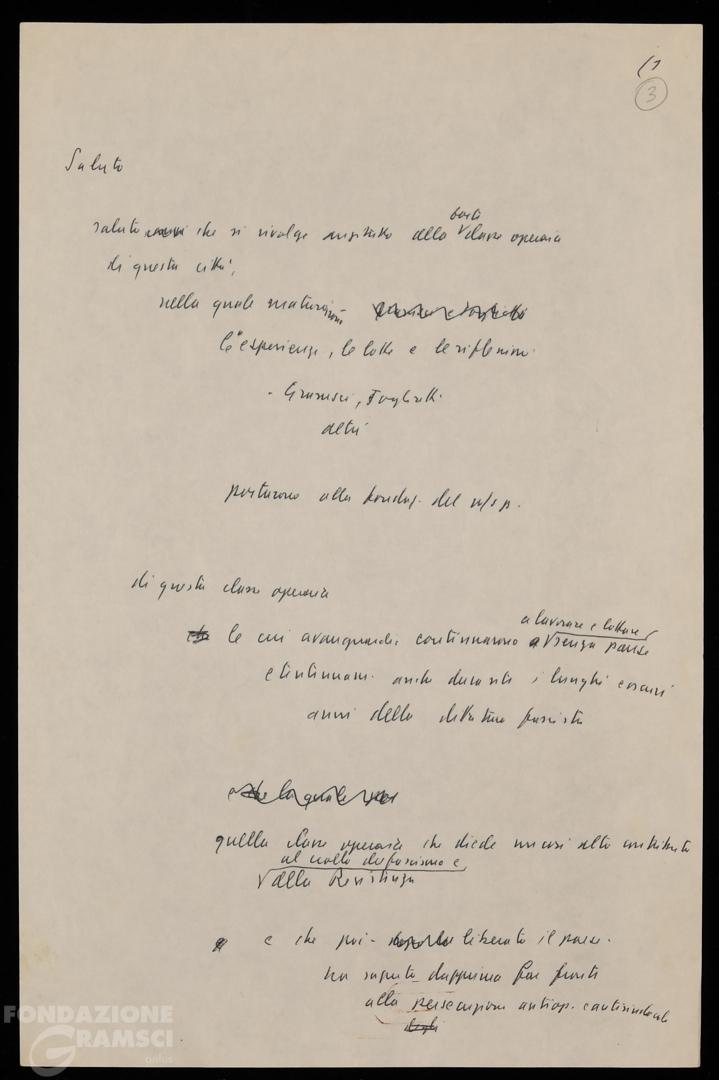 (1
3
Saluto
saluto che si rivolge anzitutto alla forte classe operaia
di questa città,
nella quale maturarono
le esperienze, le lotte e le riflessioni
- Gramsci, Togliatti
altri
portarono alla fondaz. del n/s p.
di questa classe operaia
che le cui avanguardie continuarono a lavorare e lottare senza pause
e tentennam. anche durante i lunghi e oscuri
anni della dittatura fascista
e che la quale
quella classe operaia che diede un così alto contributo
al crollo del fascismo e
alla Resistenza
e che poi - liberato il paese -
ha saputo dapprima far fronte
alla persecuzione antiop. e antisindacale
degli
FONDAZIONE
GRAMSCI
onlus